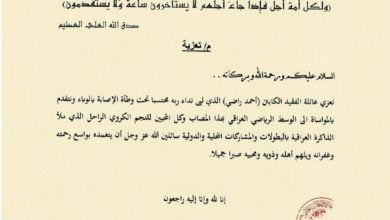 (ولكل أمة أجل فإذا جاء أجلهم لا يستأخرون ساعة ولا يستقدمون)
صدق الله العلي العظيم
م/ تعزية
السلام عليكم ورحمة الله وبركاته ..
نعزي عائلة الفقيد الكابتن (أحمد راضي) الذي لبى نداء ربه محتسبا تحت وطأة الإصابة بالوباء ونتقدم
بالمواساة الى الوسط الرياضي العراقي بهذا المصاب وكل المحبين للنجم الكروي الراحل الذي ملأ
الذاكرة العراقية بالبطولات والمشاركات المحلية والدولية سائلين الله عز وجل أن يتغمده بواسع رحمته
وغفرانه ويلهم أهله وذويه ومحبيه صبرا جميلا.
إنا لله وإنا إليه راجعون